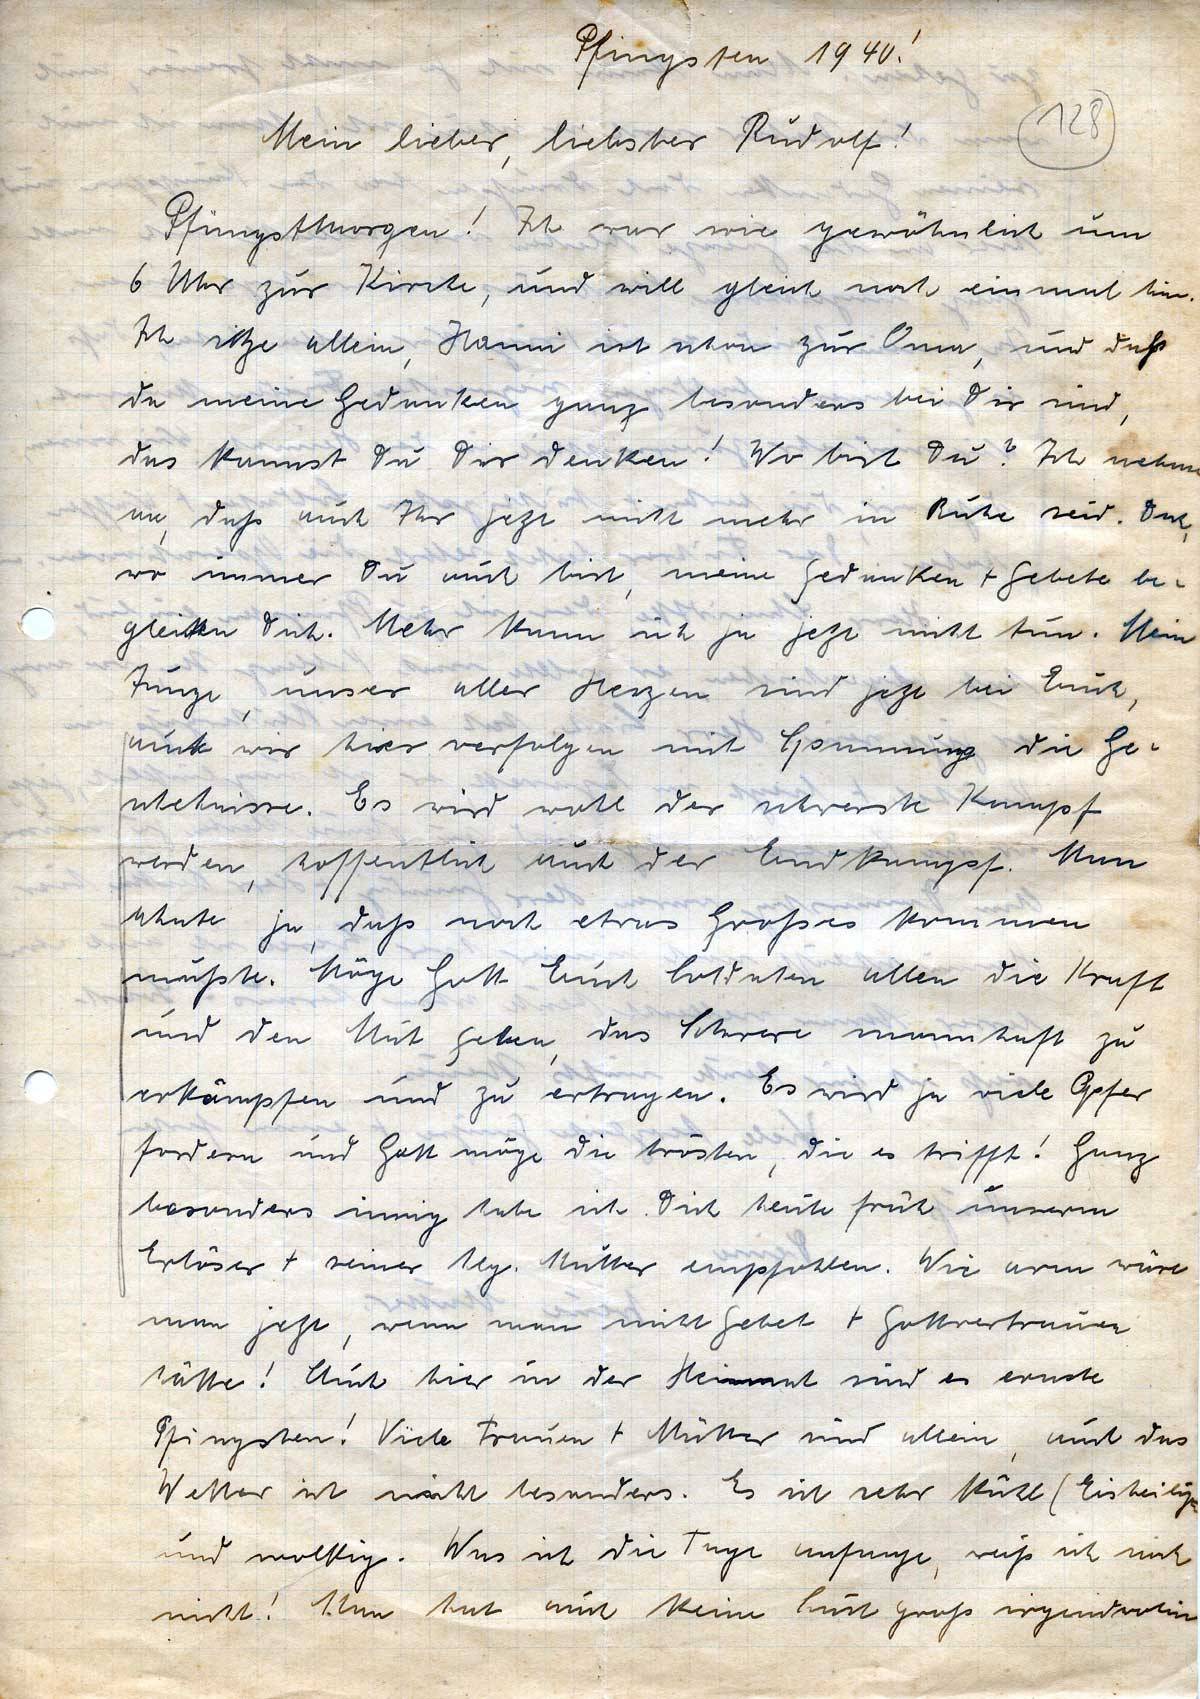 Pfingsten 1940!
128
Mein lieber, liebster Rudolf!
Pfingstmorgen! Ich war wie gewöhnlich um
6 Uhr zur Kirche, und will gleich noch einmal hin.
Ich sitze allein, Hanni ist schon zur Oma, und daß
da meine Gedanken ganz besonders bei Dir sind,
das kannst Du Dir denken! Wo bist Du? Ich nehme
an, daß auch Ihr jetzt nicht mehr in Ruhe seid. Doch,
wo immer Du auch bist, meine Gedanken + Gebete be-
gleiten Dich. Mehr kann ich ja jetzt nicht tun. Mein
Junge, unser aller Herzen sind jetzt bei Euch,
auch wir hier verfolgen mit Spannung die Ge-
schehnisse. Es wird wohl der schwerste Kampf
werden, hoffentlich auch der Endkampf. Man
ahnte ja, daß noch etwas Großes kommen
mußte. Möge Gott Euch Soldaten allen die Kraft
und den Mut geben, das Schwere mannhaft zu
erkämpfen und zu ertragen. Es wird ja viele Opfer
fordern und Gott möge die trösten, die es trifft! Ganz
besonders innig habe ich Dich heute früh unserm
Erlöser + seiner hlg. Mutter empfohlen. Wie arm wäre
man jetzt, wenn man nicht Gebet + Gottvertrauen
hätte! Auch hier in der Heimat sind es ernste
Pfingsten! Viele Frauen + Mütter sind allein, auch das
Wetter ist nicht besonders. Es ist sehr kühl (Eisheilige
und wolkig. Was ich die Tage anfange, weiß ich noch
nicht! Man hat auch keine Lust groß irgendwohin